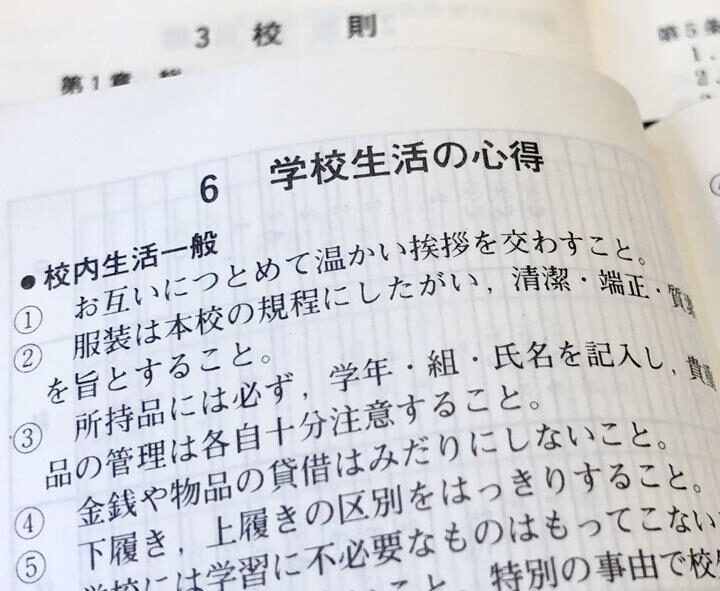 3 校 則
第1章
第5条
1.
2.
6 学校生活の心得
●校内生活一般
① お互いにつとめて温かい挨拶を交わすこと。
② 服装は本校の規程にしたがい，清潔・端正・質
を旨とすること。
③ 所持品には必ず，学年・組・氏名を記入し，貴重
品の管理は各自十分注意すること。
④ 金銭や物品の貸借はみだりにしないこと。
⑤ 下履き，上履きの区別をはっきりすること。
学校には学習に不必要なものはもってこない
こと。特別の事由で校